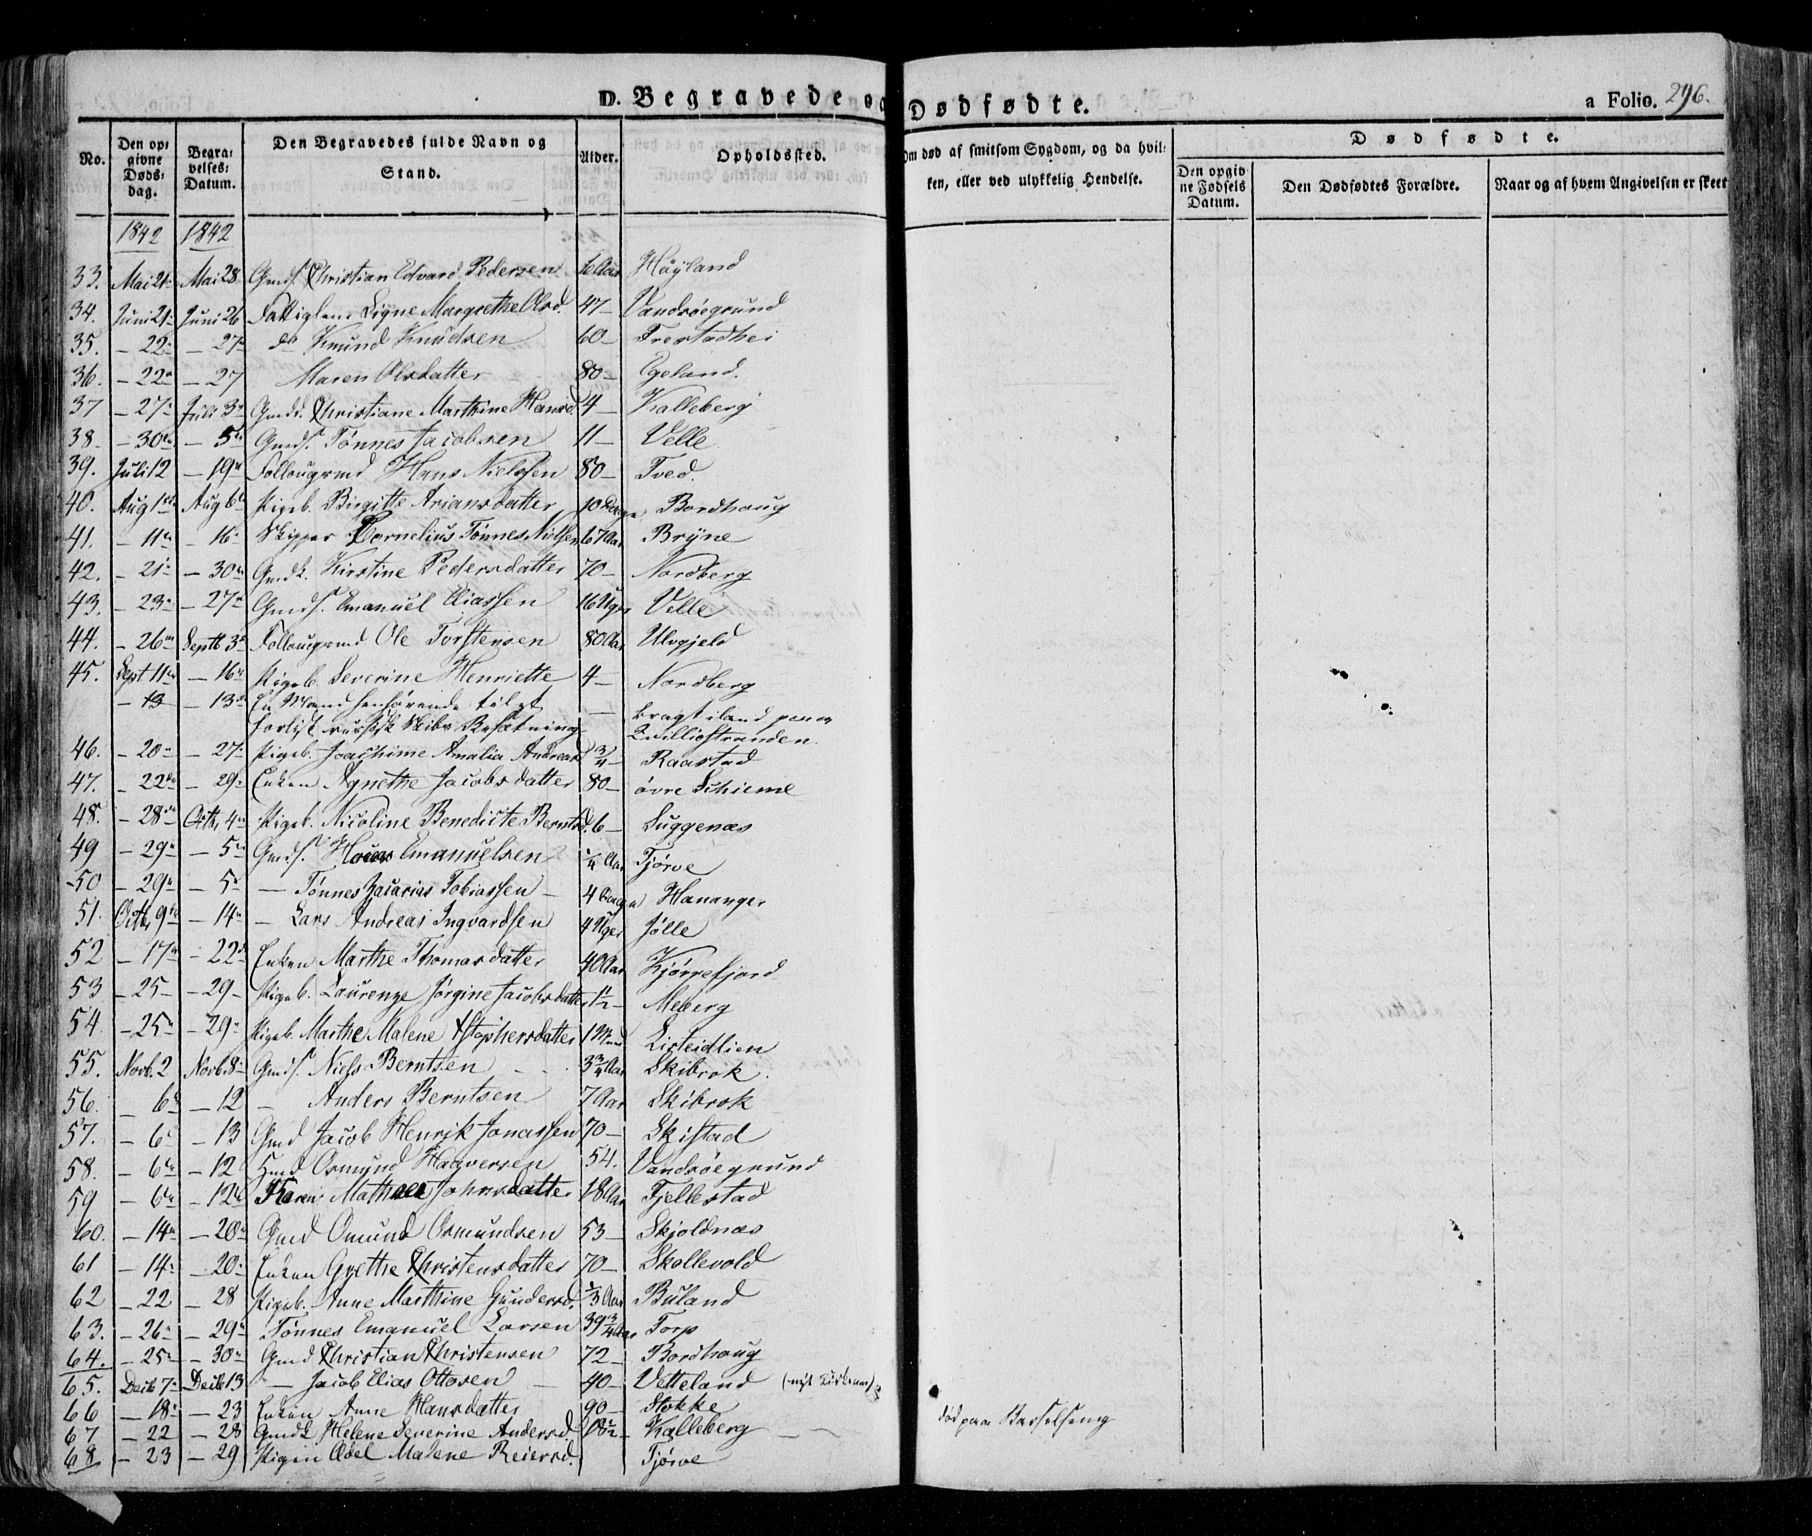 D. Begravede og Dødfødte.
a Folio. 296.
No.
Den opgivne Dødsdag.
Begravelses-Datum.
Den Begravedes fulde Navn og Stand.
Alder.
Opholdssted.
Om død af smitsom Sygdom, og da hvilken, eller ved ulykkelig Hendelse.
Dødfødte.
Den opgivne Fødsels Datum.
Den Dødfødtes Forældre.
Naar og af hvem Angivelsen er skeet
1842 1842
33. Mai 21 Mai 28 Gmds. Christian Edvard Pedersen 6 Aar Høyland
34. Juni 21 Juni 26 Fattiglem Signe Margrethe Olsd. 47 — Vandsøegrund
35. — 22 — 27 do Knud Knudsen 60 — Frestadhei
36. — 22 — 27 Maren Olsdatter 80 — Egeland.
37 — 27 Juli 3 Gmds. Christiane Marthine Hansd. 4 Kalleberg
38. — 30 — 5 Gmds. Tønnes Jacobsen 11 — Velle
39. Juli 12 — 19 Follougmd Hans Nielssen 80 — Tved.
40. Aug 1 Aug 6 Pigeb. Birgitte Ariansdatter 10 Dage Bordhoug
41. — 11 — 16 Skipper Cornelius Tønnes Nielsen 67 Aar Bryne
42. — 21 — 30 Gmdk. Kirstine Pedersdatter 70 — Nordberg
43. — 23 — 27 Gmds. Emanuel Eliassen 16 Uger Velle
44. — 26 Septb 3 Follougmd Ole Torstensen 80 Aar Ulvgjeld
45. Sept 11 — 16 Pigeb. Severine Henriette 4 — Nordberg
— 13 — 13 En Mand henhørende til et — bragt iland paa
forlist russisk Skibs Besætning Qvilliostranden.
46. — 20 — 27 Pigeb. Joachime Amalia Andreasd. 3/4 — Raastad
47. — 22 — 29 Enken Agnethe Jacobsdatter 80 — øvre Schieme
48. — 28 Octb. 4 Pigeb. Nicoline Benedicte Berntsd. 6 — Luggenæs
49 — 29 — 5 Gmds. Hans Emanuelsen 1/4 Aar Tjørve
50 — 29 — 5 — Tønnes Zacarias Tobiassen — 4 Dage Hananger
51. Octb. 9 — 14 — Lars Andreas Ingvardsen 4 Uger Jølle
52 — 17 — 22 Enken Marthe Thomasdatter 40 Aar Kjørrefjord
53 — 25 — 29 Pigeb. Laurenze Jørgine Jacobsdatter 1 1/2 — Meberg
54. — 25 — 29 Pigeb. Marthe Malene Xstophersdatter 1 Mnd. Listeidlien
55. Novb. 2 Novb. 8 Gmds. Niels Berntsen 3 3/4 Aar Skibrok.
56. — 6 — 12 — Anders Berntsen 7 Aar Skibrok
57. — 6 — 13 Gmd Jacob Henrik Jonassen 70 — Skistad
58. — 6 — 12 Hmd Osmund Haaversen 54. Vandsøegrund
59 — 6 — 12 Karen Mathea Johnsdatter 18 Aar Fjellestad
60. — 14 — 20 Gmd Omund Osmundsen 53 — Skjoldnæs
61 — 14 — 20 Enken Grethe Christensdatter 70 — Skollevold
62 — 22 — 28 Pigeb. Anne Marthine Gundersd. 1/3 Aar Buland
63. — 26 — 29 Tønnes Emanuel Larsen 39 3/4 Aar Torp
64. — 25 — 30 Gmd Christian Christensen 72 — Bordhoug
65. Decb 7 Decb 13 — Jacob Elias Ottosen — 40 — Vetteland
66 — 18 — 23 Enken Anne Hansdatter 90 — Stokke
67 — 22 — 28 Gmdk Helene Severine Andersd. Kalleberg — død paa Barselseng
68 — 23 — 29 Pigen Edel Malene Reiersd. Tjørve